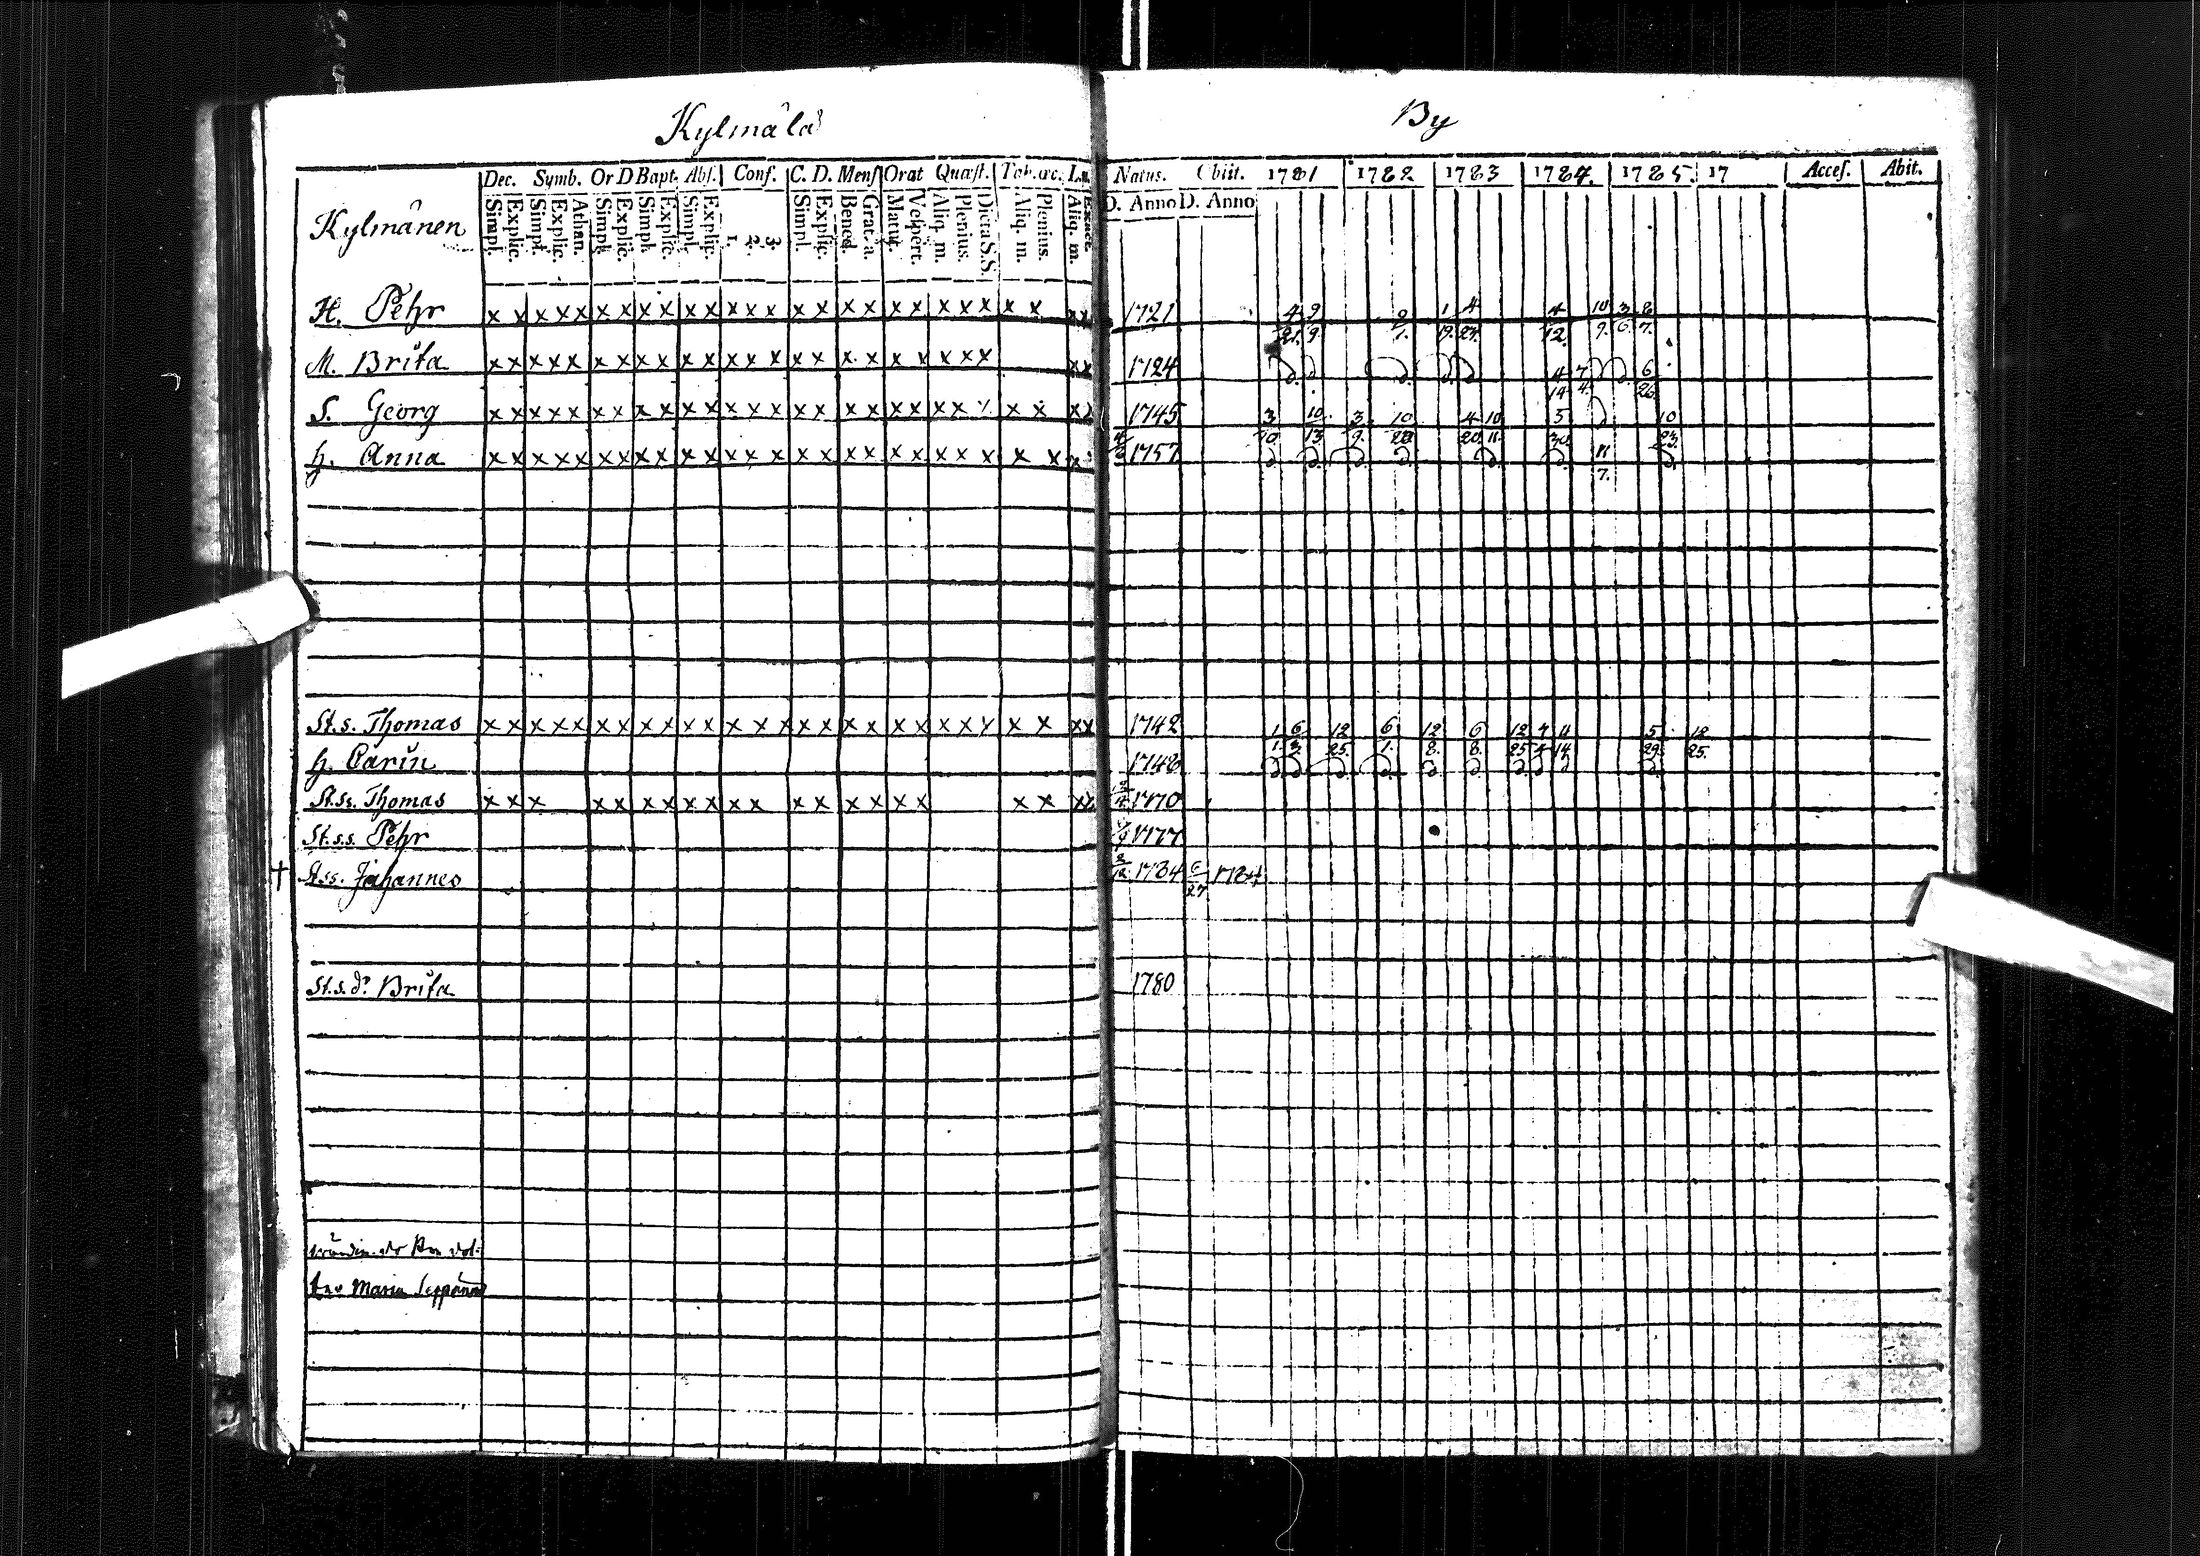 Kylmälä By
Dec. Symb. Or D Bapt. Abs. Conf. C. D. Mens Orat Quæst. Tab. œc. Natus. Obiit. 1781 1782. 1783 1784. 1785. 17 Acces. Abit.
Kylmänen Simpl. Explic. Simpl. Explic. Athan. Simpl. Explic. Simpl. Explic. Simpl. Explic. 1. 2. 3. Simpl. Explic. Bened. Grat. a. Matut. Vespert. Aliq. m. Plenius. Dicta S.S. Aliq. m. Plenius. Aliq. m. Exact. D. Anno D. Anno
H. Pehr x x x x x x x x x x x x x x x x x x x x x x x x x x 1721 4/21. 9/9. 9/1. 1/19. 4/23. 4/12. 10/9. 3/6. 8/7.
M. Brita x x x x x x x x x x x x x x x x x x x x x x x x 1724 4/14 7/4. 6/26
S. Georg x x x x x x x x x x x x x x x x x x x x x x x x x x 1745 3/10 10/13 3/9. 10/20 4/20 10/11. 5/30 10/23.
h. Anna x x x x x x x x x x x x x x x x x x x x x x x x x x 1757 11/7.
St. s. Thomas x x x x x x x x x x x x x x x x x x x x x x x x x x 1742 1/1. 6/3. 12/25. 6/1. 12/8. 6/8. 12/25 4/4 11/14 5/29. 12/25.
h. Carin 1748
St. ss. Thomas x x x x x x x x x x x x x x x x x x x x x 1770
St. s.s. Pehr 1777
† St. ss. Johannes 1784 6/27 1784
St. s. dr. Brita 1780
Maria Leppänen